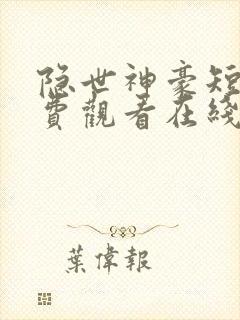 隐世神豪短
費觀看在綫
葉偉報